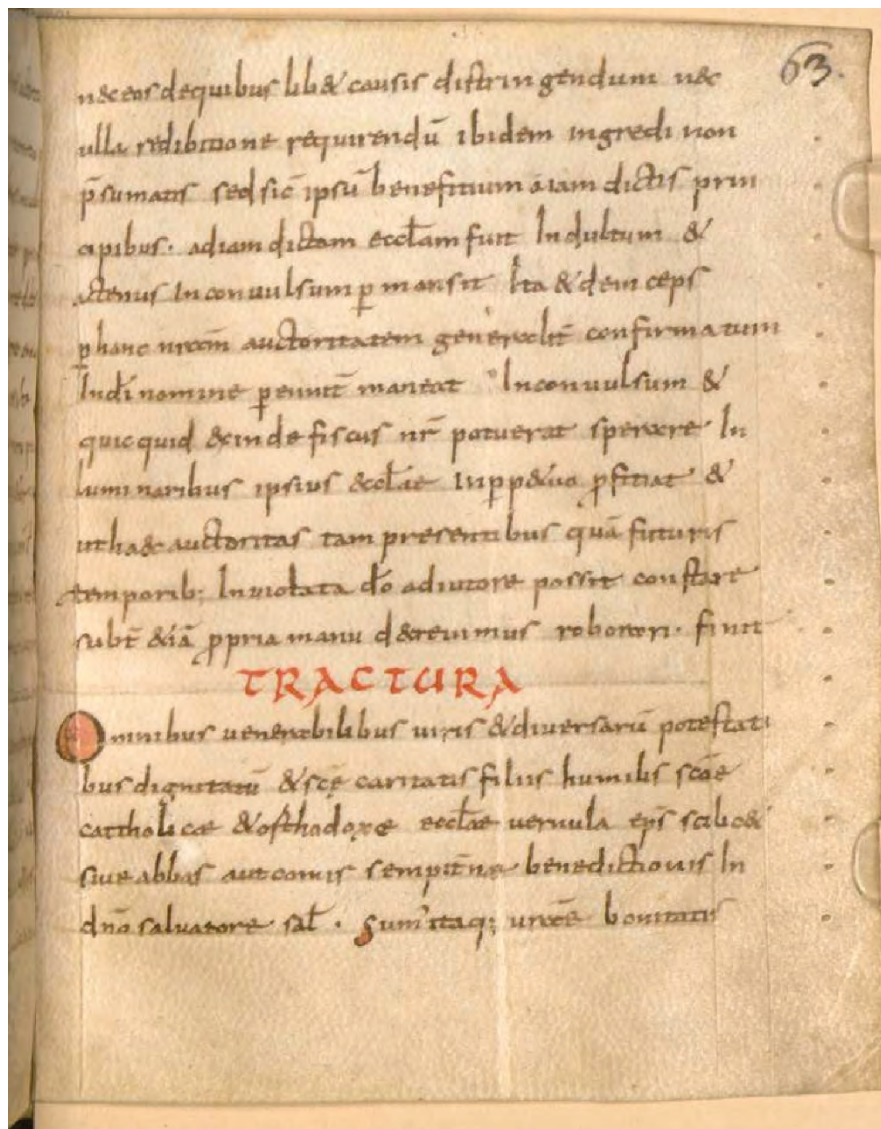 63.
n&eosdequibus lib& causis distringendum nec
ulla redibitione requirendū ibidem ingredi non
p̄sumatis sed sic̄ ipsū benefitium a iam dictis prin
cipibus · adiam dictam eccłam fuit Indultum &
actenus Inconvulsum ꝑmansit Ita & deinceps
ꝑ hanc nrām auctoritatem generalit̄ confirmatum
Indī nomine ꝑennit̄ maneat Inconvulsum &
quicquid &inde fiscus nr̄ potuerat sperare In
luminaribus ipsius &cclae Inꝑp&uo ꝓfitiat &
uthaec auctoritas tam presentibus quā futuris
temporib; Inviolata dō adiutore possit constare
subt̄ &iā ꝓpria manu decrevimus roborari · finit
TRACTURA
Omnibus venerabilibus viris & diversarū potestati
bus dignitatū & scę caritatis filiis humilis scāe
cattholicae & osthodoxe eccłae vernula ep̄s scilic&
sive abbas aut comis sempit̄nae benedictionis In
dn̄o salvatore sał · Sum̄ itaq; urāe bonitatis